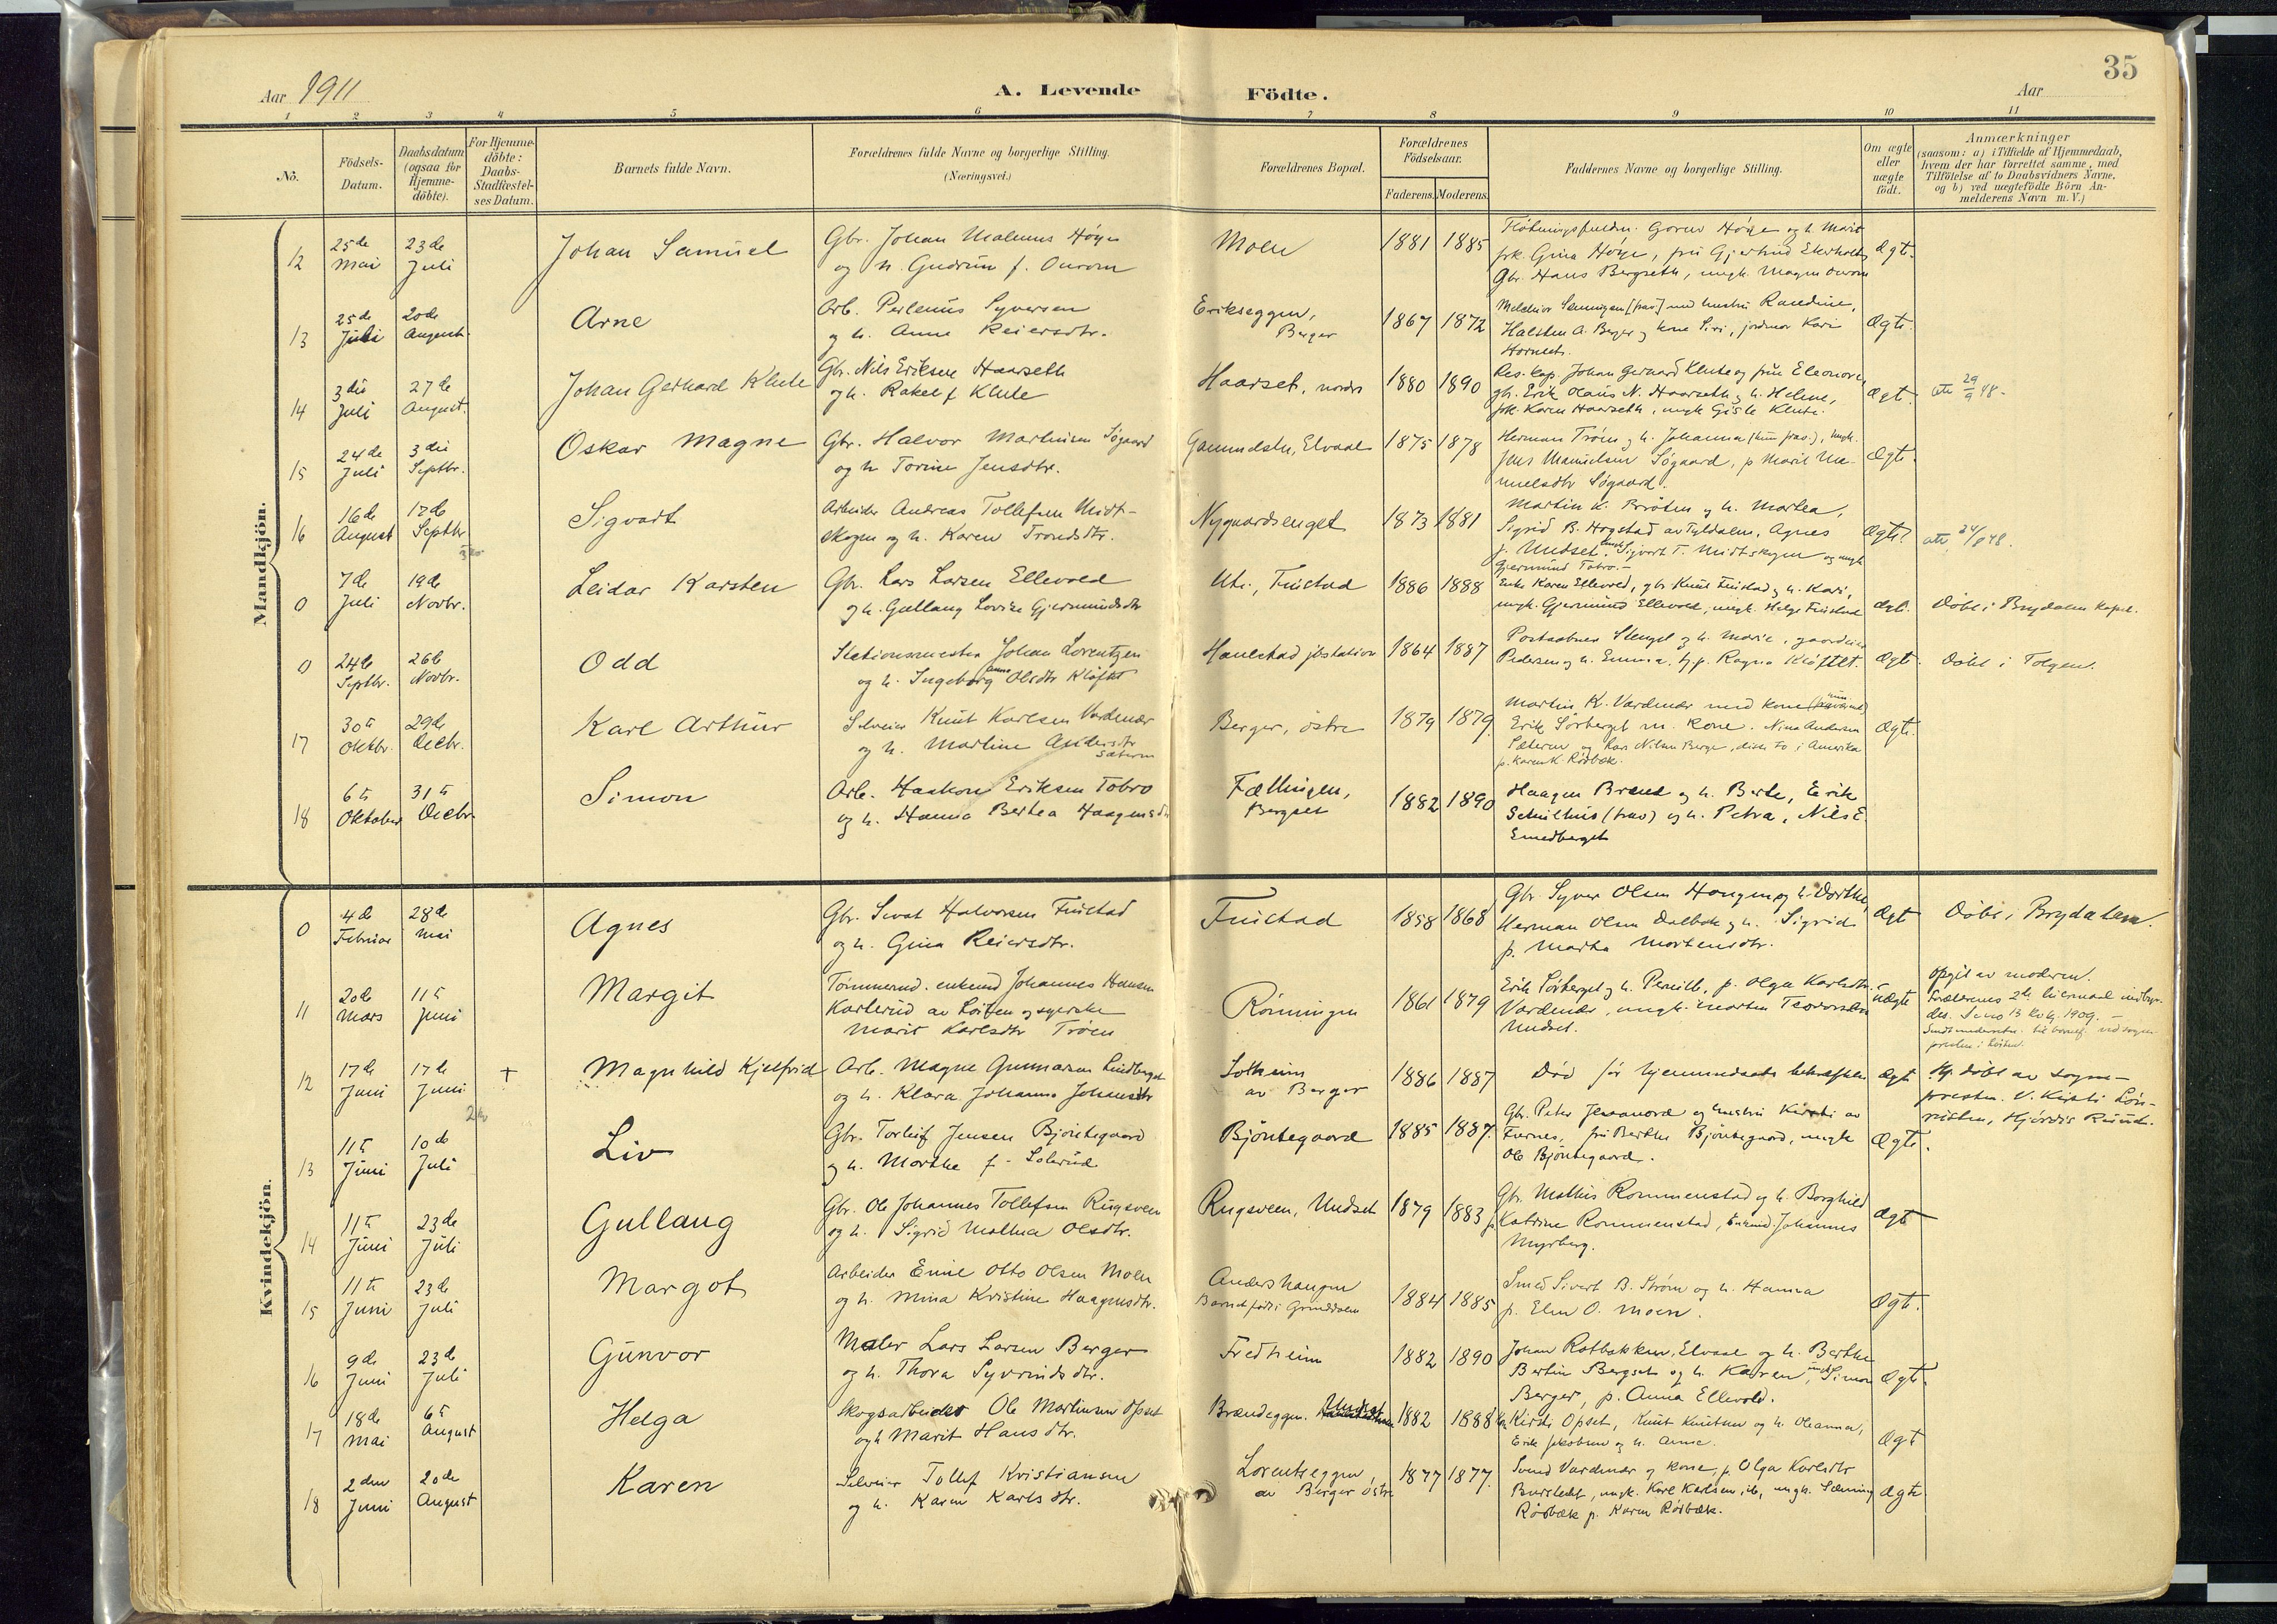 35
Aar 1911
A. Levende Födte.
Aar
1 2 3 4 5 6 7 8 9 10 11
No.
Födsels-Datum.
Daabsdatum (ogsaa for Hjemme-döbte).
For Hjemme-döbte: Daabs-Stadfæstel-ses Datum.
Barnets fulde Navn.
Forældrenes fulde Navne og borgerlige Stilling.
(Næringsvei.)
Forældrenes Bopæl.
Forældrenes Födselsaar.
Faderens. Moderens.
Faddernes Navne og borgerlige Stilling.
Om ægte eller uægte födt.
Anmærkninger
(saasom: a) i Tilfælde af Hjemmedaab,
hvem der har forrettet samme, med
Tilföielse af to Daabsvidners Navne,
og b) ved uægtefödte Börn An-
melderens Navn m. V.)
Mandkjön.
12 25de Mai 23de Juli Johan Samuel
Gbr. Johan Høye
og h. Gudrun f.
Moen 1881 1885
og h. Marit
frk. Gina Høye, fru Gjertrud
Gbr. Hans Bergseth, ungk. Magne
Ægt.
13 25de Juli 20de August Arne
Arb. Syversen
og h. Anne Reiersdtr.
Erikseggen,
Berger
1867 1872
med hustru Randine,
Halsten A. Berger og kone Siri, jordmor Kari
Ægte.
14 3die Juli 27de August. Johan Gerhard Klute
Gbr. Nils Eriksen Haarseth
og h. Rakel f. Klute
Haarset, nordre 1880 1890
Res. kap. Johan Gerhard Klute og fru Eleonore,
gb. Erik Olaus N. Haarseth og h. Helene,
frk. Karen Haarseth, ungk Gisle Klute.
Ægt.
att 29/9 48.
15 24de Juli 3die Septbr. Oskar Magne
Gbr. Halvor Martinsen Søgaard
og h. Torine Jensdtr.
Elvaal 1875 1878
Herman Trøen og h. Johanna (hun frav.), ungk.
Jens Manuelsen Søgaard, p Marit Ma-
nuelsdtr Søgaard.
Ægt.
16 16de August 17de Septbr Sigvart
Arbeider Andreas Tollefsen Midt-
skogen og h. Karen Trondsdtr.
Nygaardsenget 1873 1881
Martin K. Brøten og h. Marthea,
Sigrid B. Hogstad av Tyldalen, Agnes
J. Undset, ungk Sigvart T. Midtskogen og ungk
Gjermund Tobro.
Ægte
att 24/ 48.
0 7de Juli 19de Novbr. Leidar Karsten
Gbr. Lars Larsen Ellevold
og h. Gullaug Lovise Gjermundsdtr
Finstad 1886 1888
Enke Karen Ellevold, gbr Knut Finstad og h. Kari,
ungk. Gjermund Ellevold, ungk. Helge Finstad
Ægt.
Døbt i Brydalen kapel.
0 24de Septbr. 26de Novbr. Odd
Stationsmester Johan Lorentzen
og h. Ingeborg Anne Olsdtr Kløftet
Hanestad jbstation 1864 1887
Postaabner Stengel og h. Marie,
Pedersen og h. Emma, p. Ragna Kløftet.
Ægt.
Døbt i Tolgen.
17 30te Oktbr. 29de Decbr. Karl Arthur
Knut Karlsen Vardenær
og h. Martine Andersdtr
Sæteren
Berger, østre 1879 1879
Martin K. Vardenær med kone
Erik Sørberget m. kone. Nina Andersen
Sæteren og Lars Nilsen Berge, i Amerika
p. Karen K. Rødbæk.
Ægte.
18 6te Oktober 31te Decbr. Simon
Arb. Haakon Eriksen Tobro
og h. Hanna Berthea Haagensdtr
Fællingen,
Bergset
1882 1890
Haagen og h. Berte, Erik
(frav) og h. Petra, Nils E.
Kvindekjön.
0 4de Februar 28de Mai Agnes
Gbr. Halvorsen Finstad
og h. Gina Reiersdtr.
Finstad 1858 1868
Gbr. Syver Olsen Haugen og h. Dorthe,
Herman Olsen Dalbak og h. Sigrid
p. Marta Mortensdtr.
Ægt
Døbt i Brydalen.
11 20de Mars 11te Juni Margit
Tømmermd. enkemd Johannes Hansen
av Løiten og syerske
Marit Karlsdtr Trøen
Rønningen 1861 1879
Erik Sørberget og h. Pernille, p. Olga Karlsdtr.
Vardenær, ungk. Morten
Undset.
uægte
Opgit av moderen.
12 17de Juni 17de Juni † Magnhild Kjelfrid
Arb. Magne Gunnarsen Lindberget
og h. Klara Johanna Johansdtr
Solheim
av Berger
1886 1887
Død før hjemmedaab bekræftet
Ægt
Hj. døbt av sogne-
presten. V. Kirsti Løn-
Hjørdis
13 11te Juni 10de Juli Liv
Gbr. Torleif Jensen Bjøntegaard
og h. Marthe f.
Bjøntegaard 1885 1887
Gbr. Peter og hustru Kirsti av
Furnes, fru Berthe Bjøntegaard, ungk
Ole Bjøntegaard.
Ægte.
14 11te Juni 23de Juli Gullaug
Gbr. Ole Johannes Tollefsen Rugsveen
og h. Sigrid Mathea Olsdtr.
Rugsveen, Undset 1879 1883
Gbr. Mathis Rommenstad og h. Borghild
p Katrine Rommenstad, Enkemd. Johannes
Myrberg.
Ægt
15 11te Juni 23de Juli Margot
Arbeider Emil Otto Olsen Moen
og h. Mina Kristine Haagensdtr.
Andershaugen
Barnet født i Grinddalen
1884 1885
Smed Sivert B. Strøm og h. Hanna
p. Elen O. Moen.
Ægt.
16 9de Juni 23de Juli Gunvor
Maler Lars Larsen Berger
og h. Thora Syverinsdtr.
Fredheim 1882 1890
Johan Rotbakken, Elvaal og h. Berthe
Bertin Bergset og h. Karen, ungk Simon
Berger, p. Anna Ellevold.
Ægte.
17 18de Mai 6te August Helga
Skogsarbeider Ole Martinsen Opset
og h Marit Hansdtr.
Brændeggen. Undset 1882 1888
Kirsti Opset, Knut Knutsen og h. Oleanna,
Erik Jakobsen og h. Anne.
Ægt
18 2den Juni 20de August Karen
Tollef Kristiansen
og h. Karen Karlsdtr.
Lorentseggen,
av Berger østre
1877 1877
Svend Vardenær og kone, p. Olga Karlsdtr
ungk. Karl Karlsen, ib., ungk.
Rødbæk p. Karen Rødbæk.
Ægte